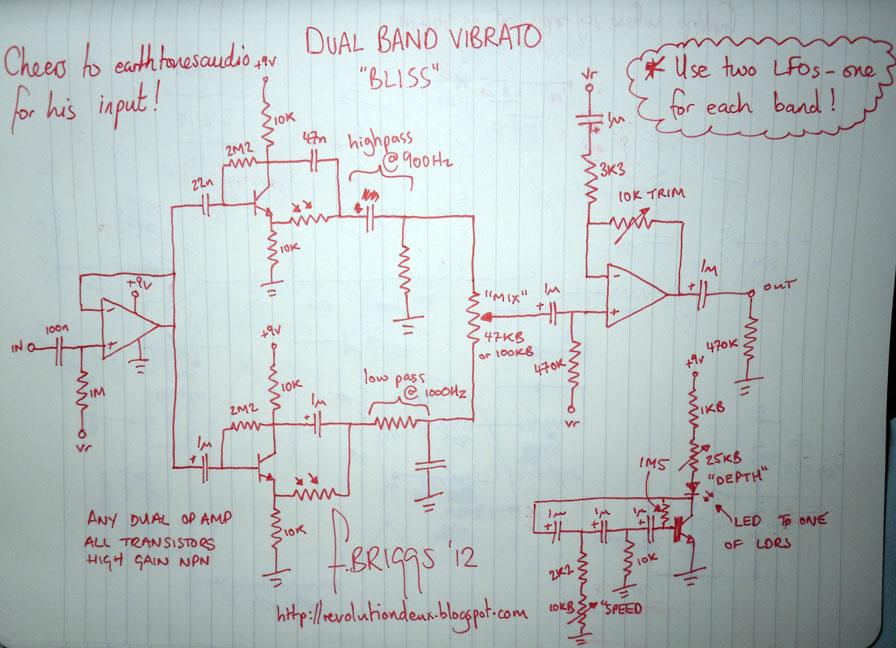 DUAL BAND VIBRATO
"BLISS"
Cheers to earthtonesaudio
for his input!
* Use two LFOs - one
for each band!
+9v
10K
2M2
47n
22n
highpass
@ 900Hz
10K
Vr
1µ
3K3
10K TRIM
-
+
+1µ
OUT
470K
+9V
-
+
IN
100n
1M
Vr
"MIX"
47KB
or 100KB
+1µ
470K
Vr
+9V
10K
2M2
+1µ
1µ
+
low pass
@ 1000Hz
10K
+9v
1KB
25KB
"DEPTH"
1M5
LED TO ONE
OF LDRS
1µ
+
1µ
+
1µ
+
2K2
10K
10KB
"SPEED
ANY DUAL OP AMP
ALL TRANSISTORS
HIGH GAIN NPN
F.BRIGGS '12
http://revolutiondeux.blogspot.com